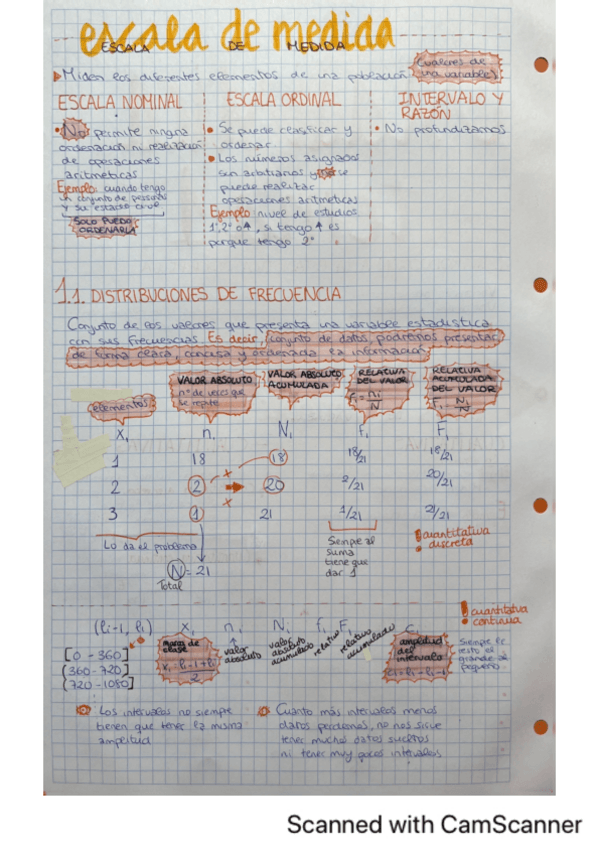 escala de medida
ESCALA DE MEDIDA
Miden los diferentes elementos de una población (valores de una variable)
ESCALA NOMINAL
• No permite ninguna
ordenación ni realización
de operaciones
aritmeticas
Ejemplo: cuando tengo
un conjunto de personas
y su estado civil
SOLO PUEDO
ORDENARLA
ESCALA ORDINAL
• Se puede clasificar y
ordenar
• Los numeros asignados
son arbitrarios y no se
puede realizar
operaciones aritmeticas
Ejemplo: nivel de estudios
1º, 2º o 4, si tengo 4 es
porque tengo 2º
INTERVALO Y
RAZÓN
• No profundizamos
1.1. DISTRIBUCIONES DE FRECUENCIA
Conjunto de los valores que presenta una variable estadística
con sus frecuencias. Es decir, conjunto de datos, podremos presentar
de forma clara, concisa y ordenada la información
elementos
VALOR ABSOLUTO
nº de veces que
se repite
VALOR ABSOLUTO
ACUMULADA
RELATIVA
DEL VALOR
fi = ni/N
RELATIVA
ACUMULADA
DEL VALOR
Fi = Ni/N
xi ni Ni fi Fi
1 18 18 18/21 18/21
2 2 20 2/21 20/21
3 1 21 1/21 21/21
+
+
Lo da el problema
N = 21
Total
Siempre al
suma
tiene que
dar 1
! cuantitativa
discreta
! cuantitativa
continua
(li-1, li) xi ni Ni fi Fi ci
[0 - 360]
(360 - 720]
(720 - 1080]
marca de
clase
xi = li-1 + li / 2
valor
absoluto
valor
absoluto
acumulado
relativo
relativo
acumulado
amplitud
del
intervalo
ci = li - li-1
Siempre le
resto el
grande al
pequeño
Los intervalos no siempre
tienen que tener la misma
amplitud
Cuanto más intervalos menos
datos perdemos, no nos sirve
tener muchos datos sueltos
ni tener muy pocos intervalos
Scanned with CamScanner